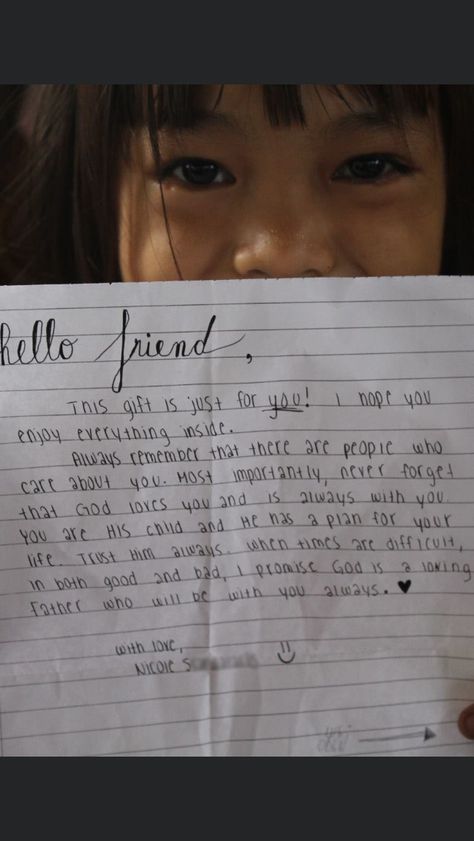 hello friend,
This gift is just for you! I hope you
enjoy everything inside.
Always remember that there are people who
care about you. Most importantly, never forget
that God loves you and is always with you.
You are His child and He has a plan for your
life. Trust Him always. When times are difficult,
in both good and bad, I promise God is a loving
Father who will be with you always. ♥
with love,
Nicole S